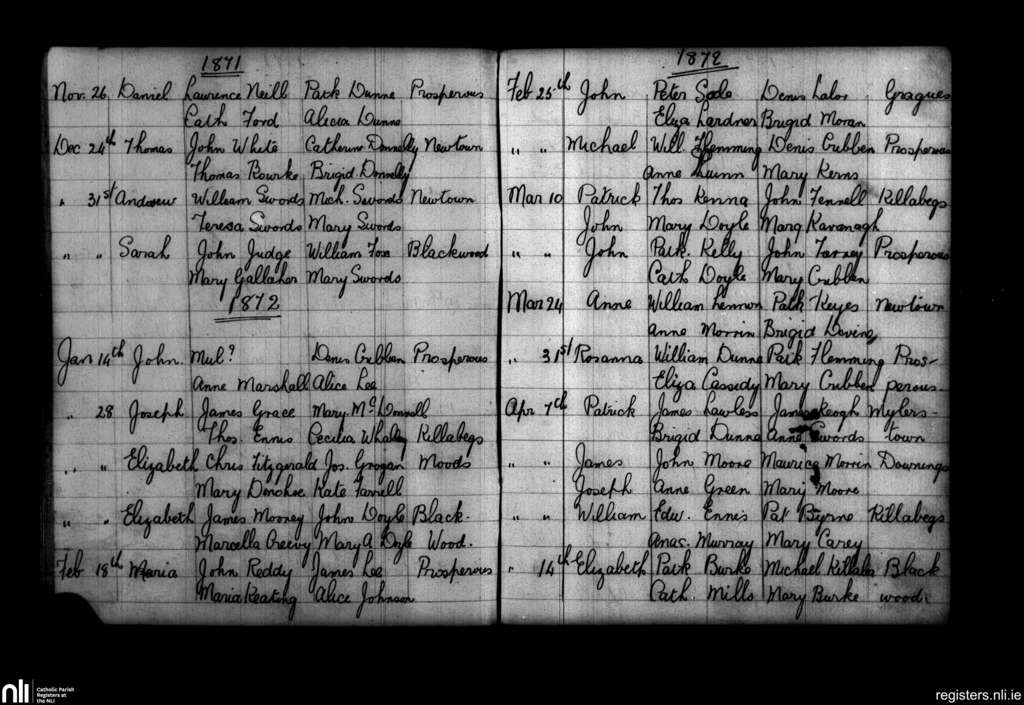 1871
Nov. 26 Daniel Lawrence Neill Patk Dunne Prosperous
Cath Ford Alicia Dunne
Dec 24th Thomas John White Catherine Donnelly Newtown
Thomas Rourke Brigid Donnelly
" 31st Andrew William Swords Mich. Swords Newtown
Teresa Swords Mary Swords
" " Sarah John Judge William Fox Blackwood
Mary Gallaher Mary Swords
1872
Jan 14th John. Mul? Denis Cribben Prosperous
Anne Marshall Alice Lee
" 28 Joseph James Grace Mary McDonnell
Thos. Ennis Cecilia Whalley Killabegs
" " Elizabeth Chris Fitzgerald Jos. Grogan Moods
Mary Donohoe Kate Farrell
" " Elizabeth James Mooney John Doyle Black.
Marcella Creevy Mary A Doyle Wood.
Feb 18th Maria John Reddy James Lee Prosperous
Maria Keating Alice Johnson
1872
Feb 25th John Peter Denis Lalor Gragues
Eliza Lardner Brigid Moran
" " Michael Will. Flemming Denis Cribben Prosperous
Anne Quinn Mary Kerns
Mar 10 Patrick Thos Kenna John Fennell Killabegs
John Mary Doyle Marg Kavanagh
" " John Patk. Kelly John Prosperous
Cath Doyle Mary Cribben
Mar 24 Anne William Lennon Patk Keyes Newtown
Anne Morrin Brigid Devine
" 31st Rosanna William Dunne Patk Flemming Pros-
Eliza Cassidy Mary Cribben perous.
Apr 7th Patrick James Lawless James Keogh Mylers-
Brigid Dunne Anne Swords town
" " James John Moore Maurice Morrin Downings
Joseph Anne Green Mary Moore
" " William Edw. Ennis Pat Byrne Killabegs
Anas. Murray Mary Carey
" 14th Elizabeth Patk Burke Michael Black
Cath. Mills Mary Burke wood.
nli
Catholic Parish
Registers at
the NLI
registers.nli.ie